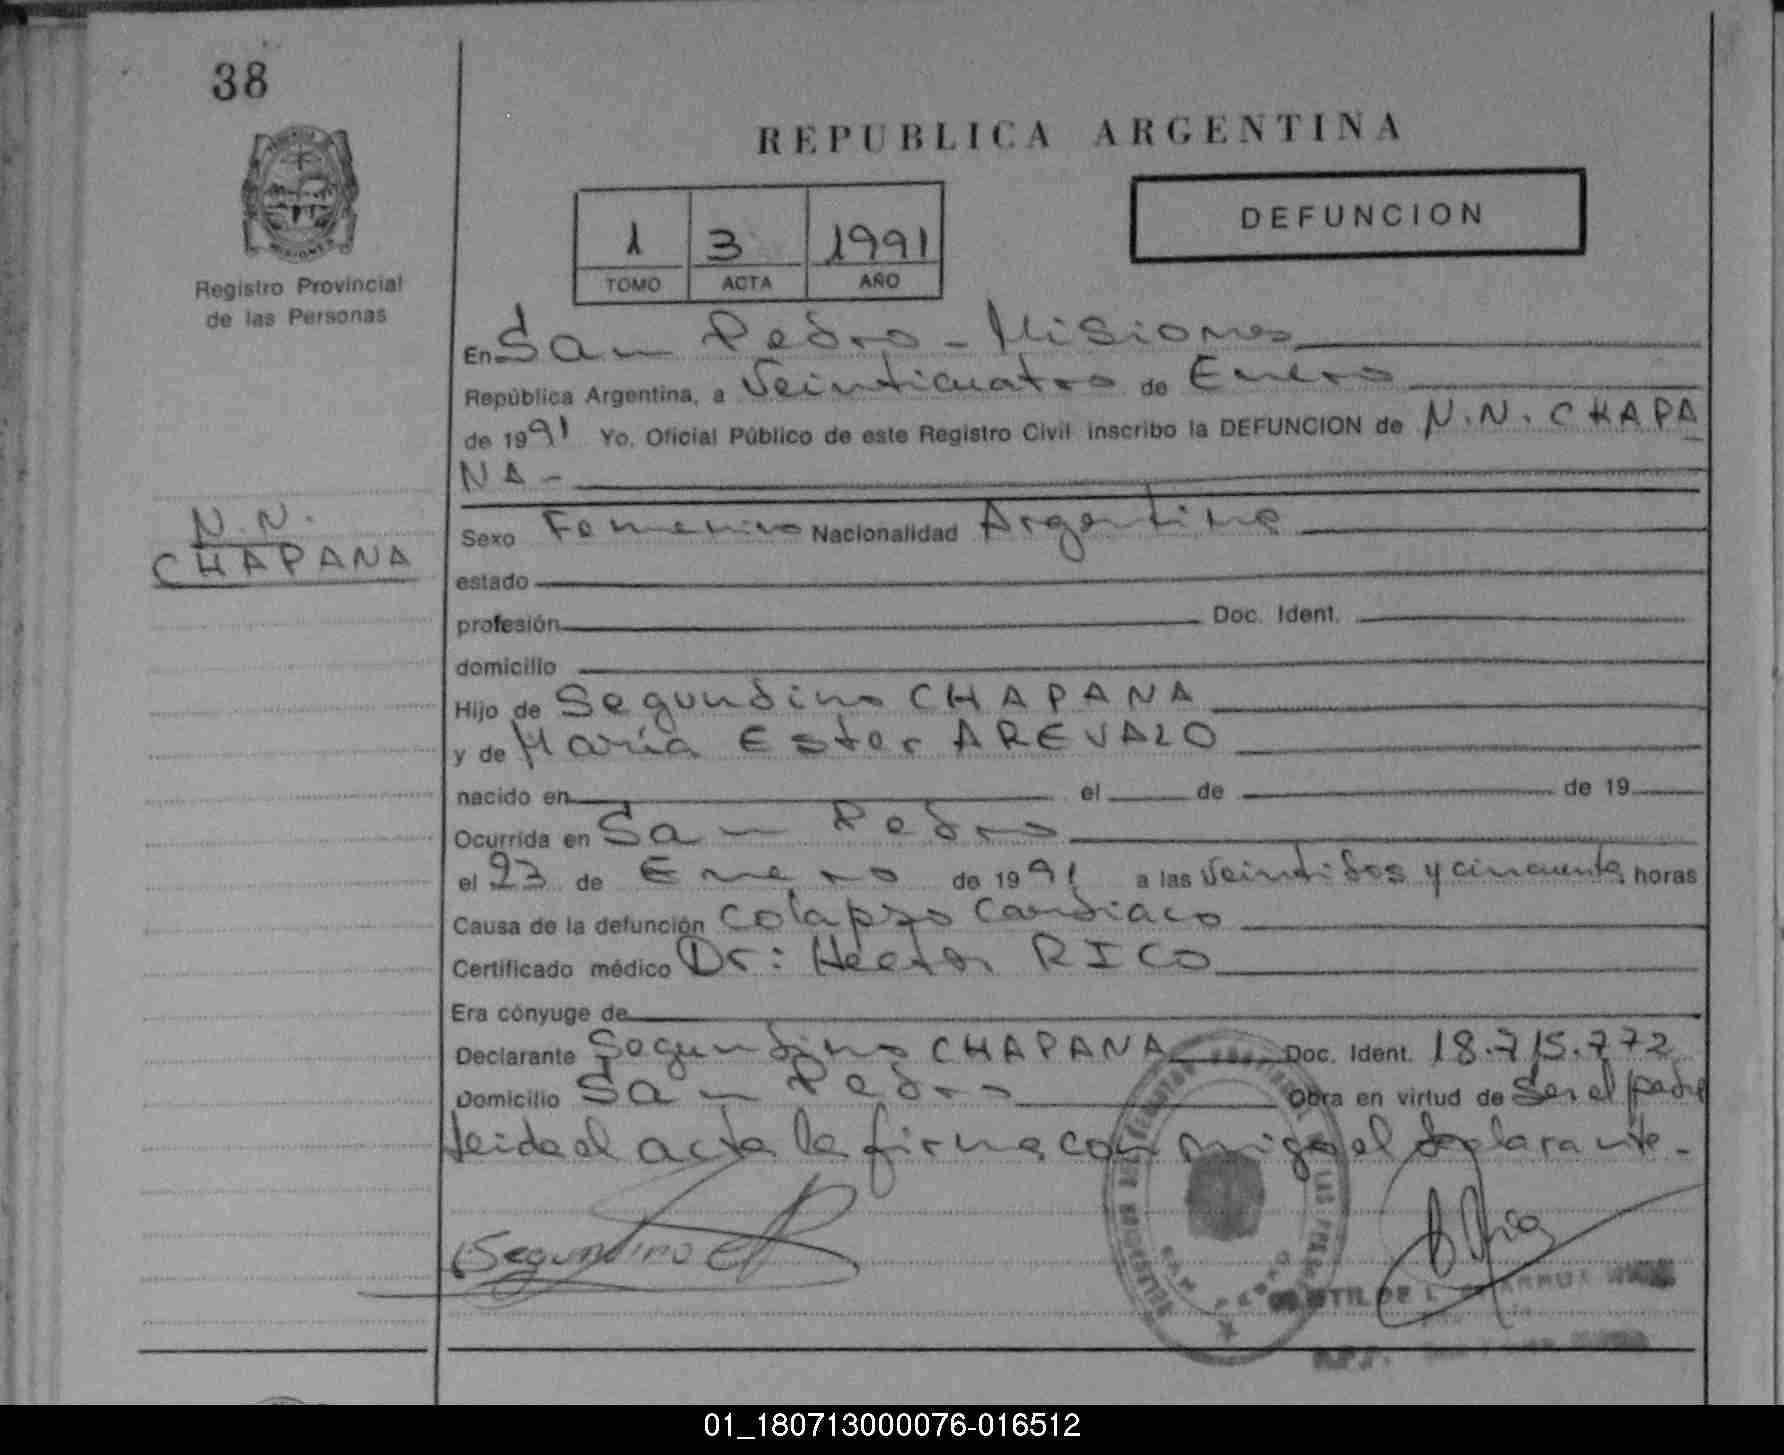 38
REPUBLICA ARGENTINA
MISIONES
Registro Provincial
de las Personas
1 3 1991
TOMO ACTA AÑO
DEFUNCION
En San Pedro - Misiones
República Argentina, a Veinticuatro de Enero
de 1991 Yo, Oficial Público de este Registro Civil inscribo la DEFUNCION de N.N. CHAPA
NA -
N.N.
CHAPANA
Sexo Femenino Nacionalidad Argentina
estado
profesión Doc. Ident.
domicilio
Hijo de Segundino CHAPANA
y de María Ester AREVALO
nacido en el de de 19
Ocurrida en San Pedro
el 23 de Enero de 1991 a las Veintidos y cincuenta horas
Causa de la defunción Colapso Cardiaco
Certificado médico Dr: Hector RICO
Era cónyuge de
Declarante Segundino CHAPANA Doc. Ident. 18.715.772
Domicilio San Pedro Obra en virtud de Ser el padre
Leida el acta la firma con migo el declarante -
Segundino
01_180713000076-016512